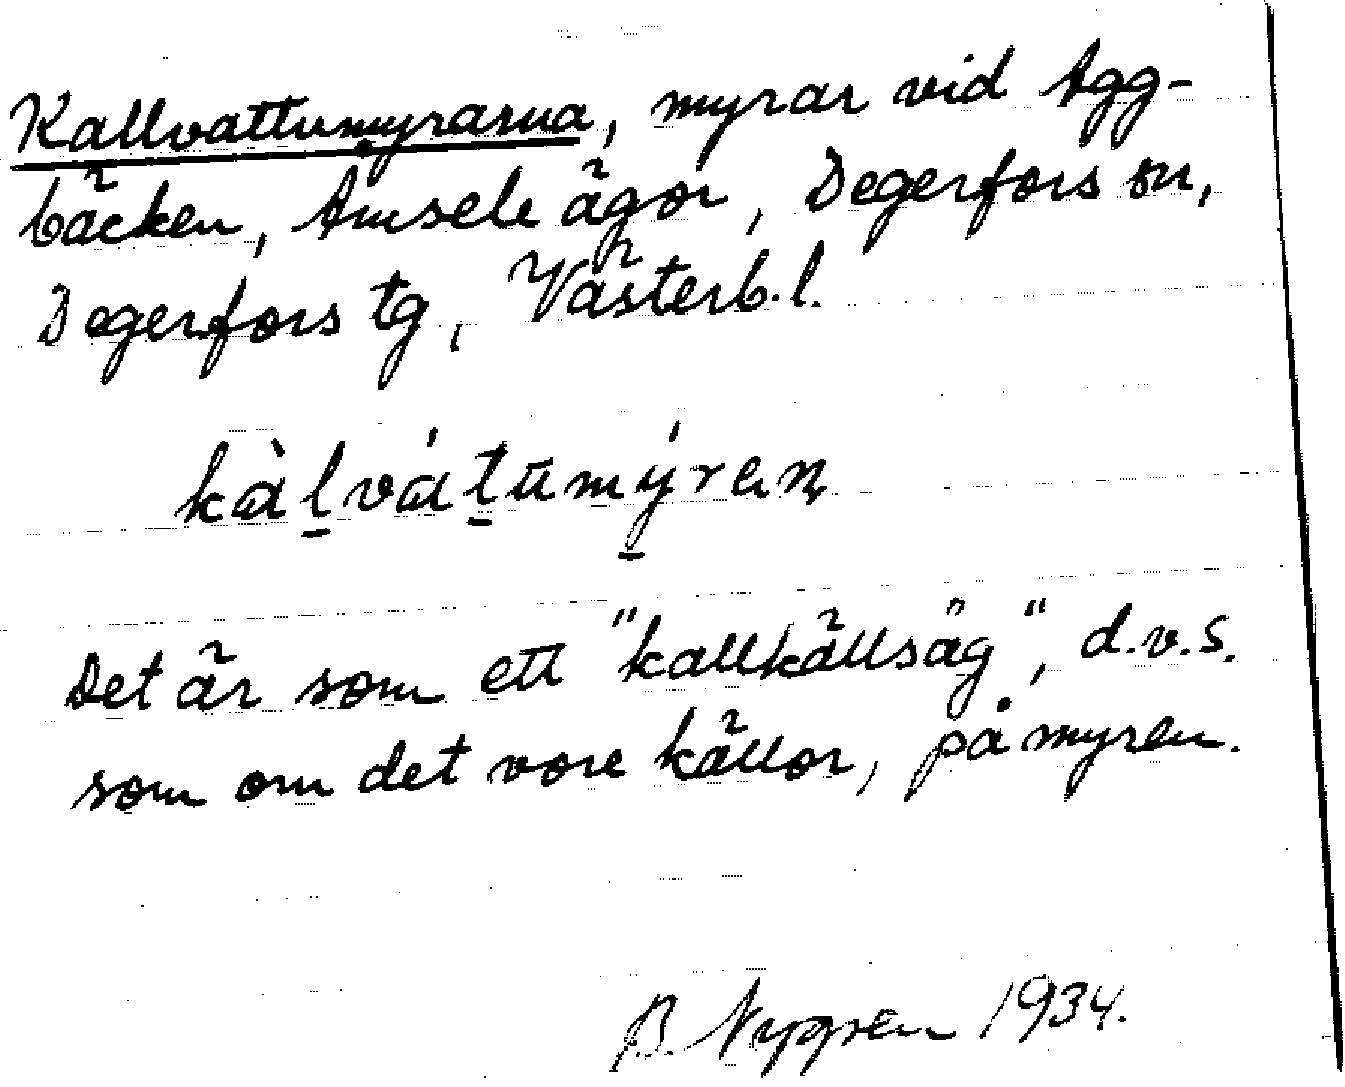 Kallvattumyrarna, myrar vid Agg-
bäcken, Amsele ägor, Degerfors sn,
Degerfors tg, Västerb.l.
kàḻvátūmýren
Det är som ett "kallkällsäg", d.v.s.
som om det vore källor, på myren.
B. Nygren 1934.